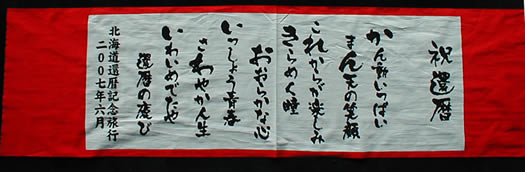 祝還暦
かん齢いっぱい
まん天の笑顔
これからが楽しみ
きらめく瞳
おおらかな心
いっしょう青春
さわやかん生
いわいめでたや
還暦の慶び
北海道還暦記念旅行
二〇〇七年六月